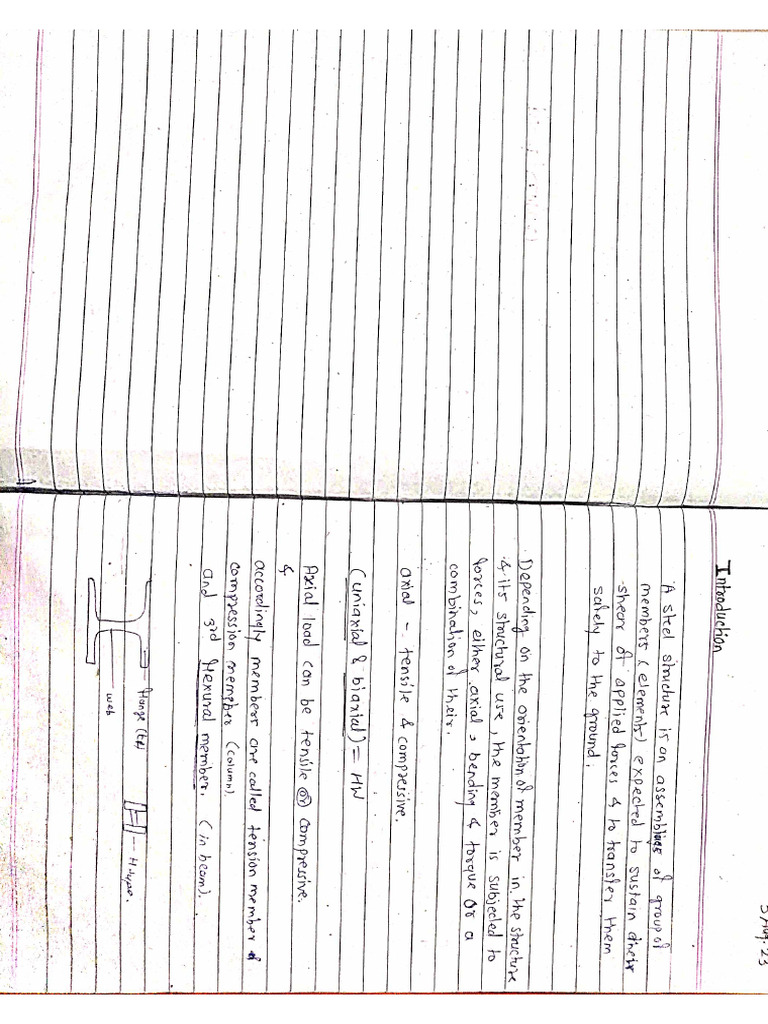 5/Aug.23
Introduction
A steel structure is an assemblies of group of
members (elements) expected to sustain their
shear of applied forces & to transfer them
safely to the ground.
Depending on the orientation of member in the structure
& its structural use, the member is subjected to
forces, either axial, bending & torque or a
combination of their.
axial - tensile & compressive.
(uniaxial & biaxial) = HW
Axial load can be tensile or compressive.
&
accordingly members are called tension member &
compression member (column).
and 3rd flexural member. (in beam).
flange (tf)
web
H type.